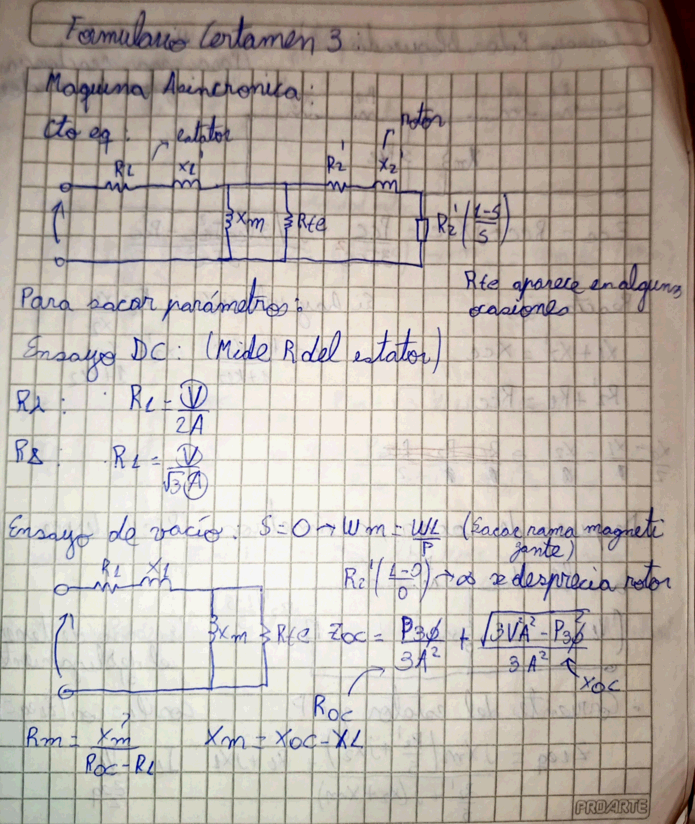 Formulario Certamen 3
Maquina Asincronica:
Cto eq: estator rotor
R1 X1' R2' X2'
Xm Rfe R2'(1-S/S)
Rfe aparece en algunas
ocasiones
Para sacar parámetros:
Ensayo DC: (Mide R del estator)
Rλ: R1 = V/2A
RΔ: R1 = V/√3 A
Ensayo de vacío: S=0 → Wm = W1/P (Sacar rama magneti
zante)
R1 X1 R2'(1-0/0) → ∞ se desprecia rotor
Xm Rfe Zoc = P3φ/3A² + √3VA² - P3φ²/3A²
Roc Xoc
Rm = Xm²/Roc-R1 Xm = Xoc-X1
PROARTE